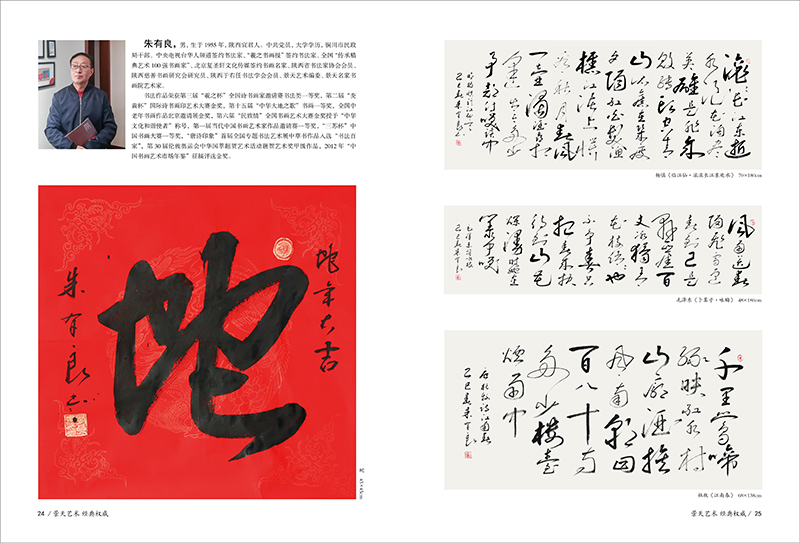 朱有良，男，生于1955年，陕西宜君人。中共党员，大学学历，铜川市民政
局干部。中央电视台华人频道签约书法家、“羲之书画报”签约书法家、全国“传承精
典艺术100强书画家”、北京复圣轩文化传媒签约书画名家、陕西省书法家协会会员、
陕西慈善书画研究会研究员、陕西于右任书法学会会员、景天艺术编委、景天名家书
画院艺术家。
书法作品荣获第三届“羲之杯”全国诗书画家邀请赛书法类一等奖，第二届“羲
裔杯”国际诗书画印艺术大赛金奖，第十五届“中华大地之歌”书画一等奖，全国中
老年书画作品北京邀请展金奖，第六届“民族情”全国书画艺术大赛金奖授予“中华
文化和谐使者”称号，第一届当代中国书画艺术家作品邀请赛一等奖，“三苏杯”中
国书画大赛一等奖，“唐诗印象”首届全国专题书法艺术展中草书作品入选“书法百
家”。第30届伦敦奥运会中华国萃超贺艺术活动题赞艺术奖甲级作品，2012年“中
国书画艺术市场年鉴”征稿评选金奖。
蛇年大吉
蛇
朱有良
蛇 65×65cm
24 / 景天艺术 经典权威
滚滚长江东逝
水浪花淘尽
英雄是非成
败转头空青
山依旧在几度
夕阳红白发渔
樵江渚上惯
看秋月春风
一壶浊酒喜相
逢古今多少
事都付笑谈中
杨慎《临江仙·滚滚长江东逝水》 70×180cm
风雨送春
归飞雪迎
春到已是
悬崖百
丈冰犹有
花枝俏俏也
不争春只
把春来报
待到山花
烂漫时她在
丛中笑
毛泽东《卜算子·咏梅》 48×180cm
千里莺啼
绿映红水村
山郭酒旗
风南朝四
百八十寺
多少楼台
烟雨中
右杜牧诗江南春
乙巳春朱有良
杜牧《江南春》 69×138cm
景天艺术 经典权威 / 25